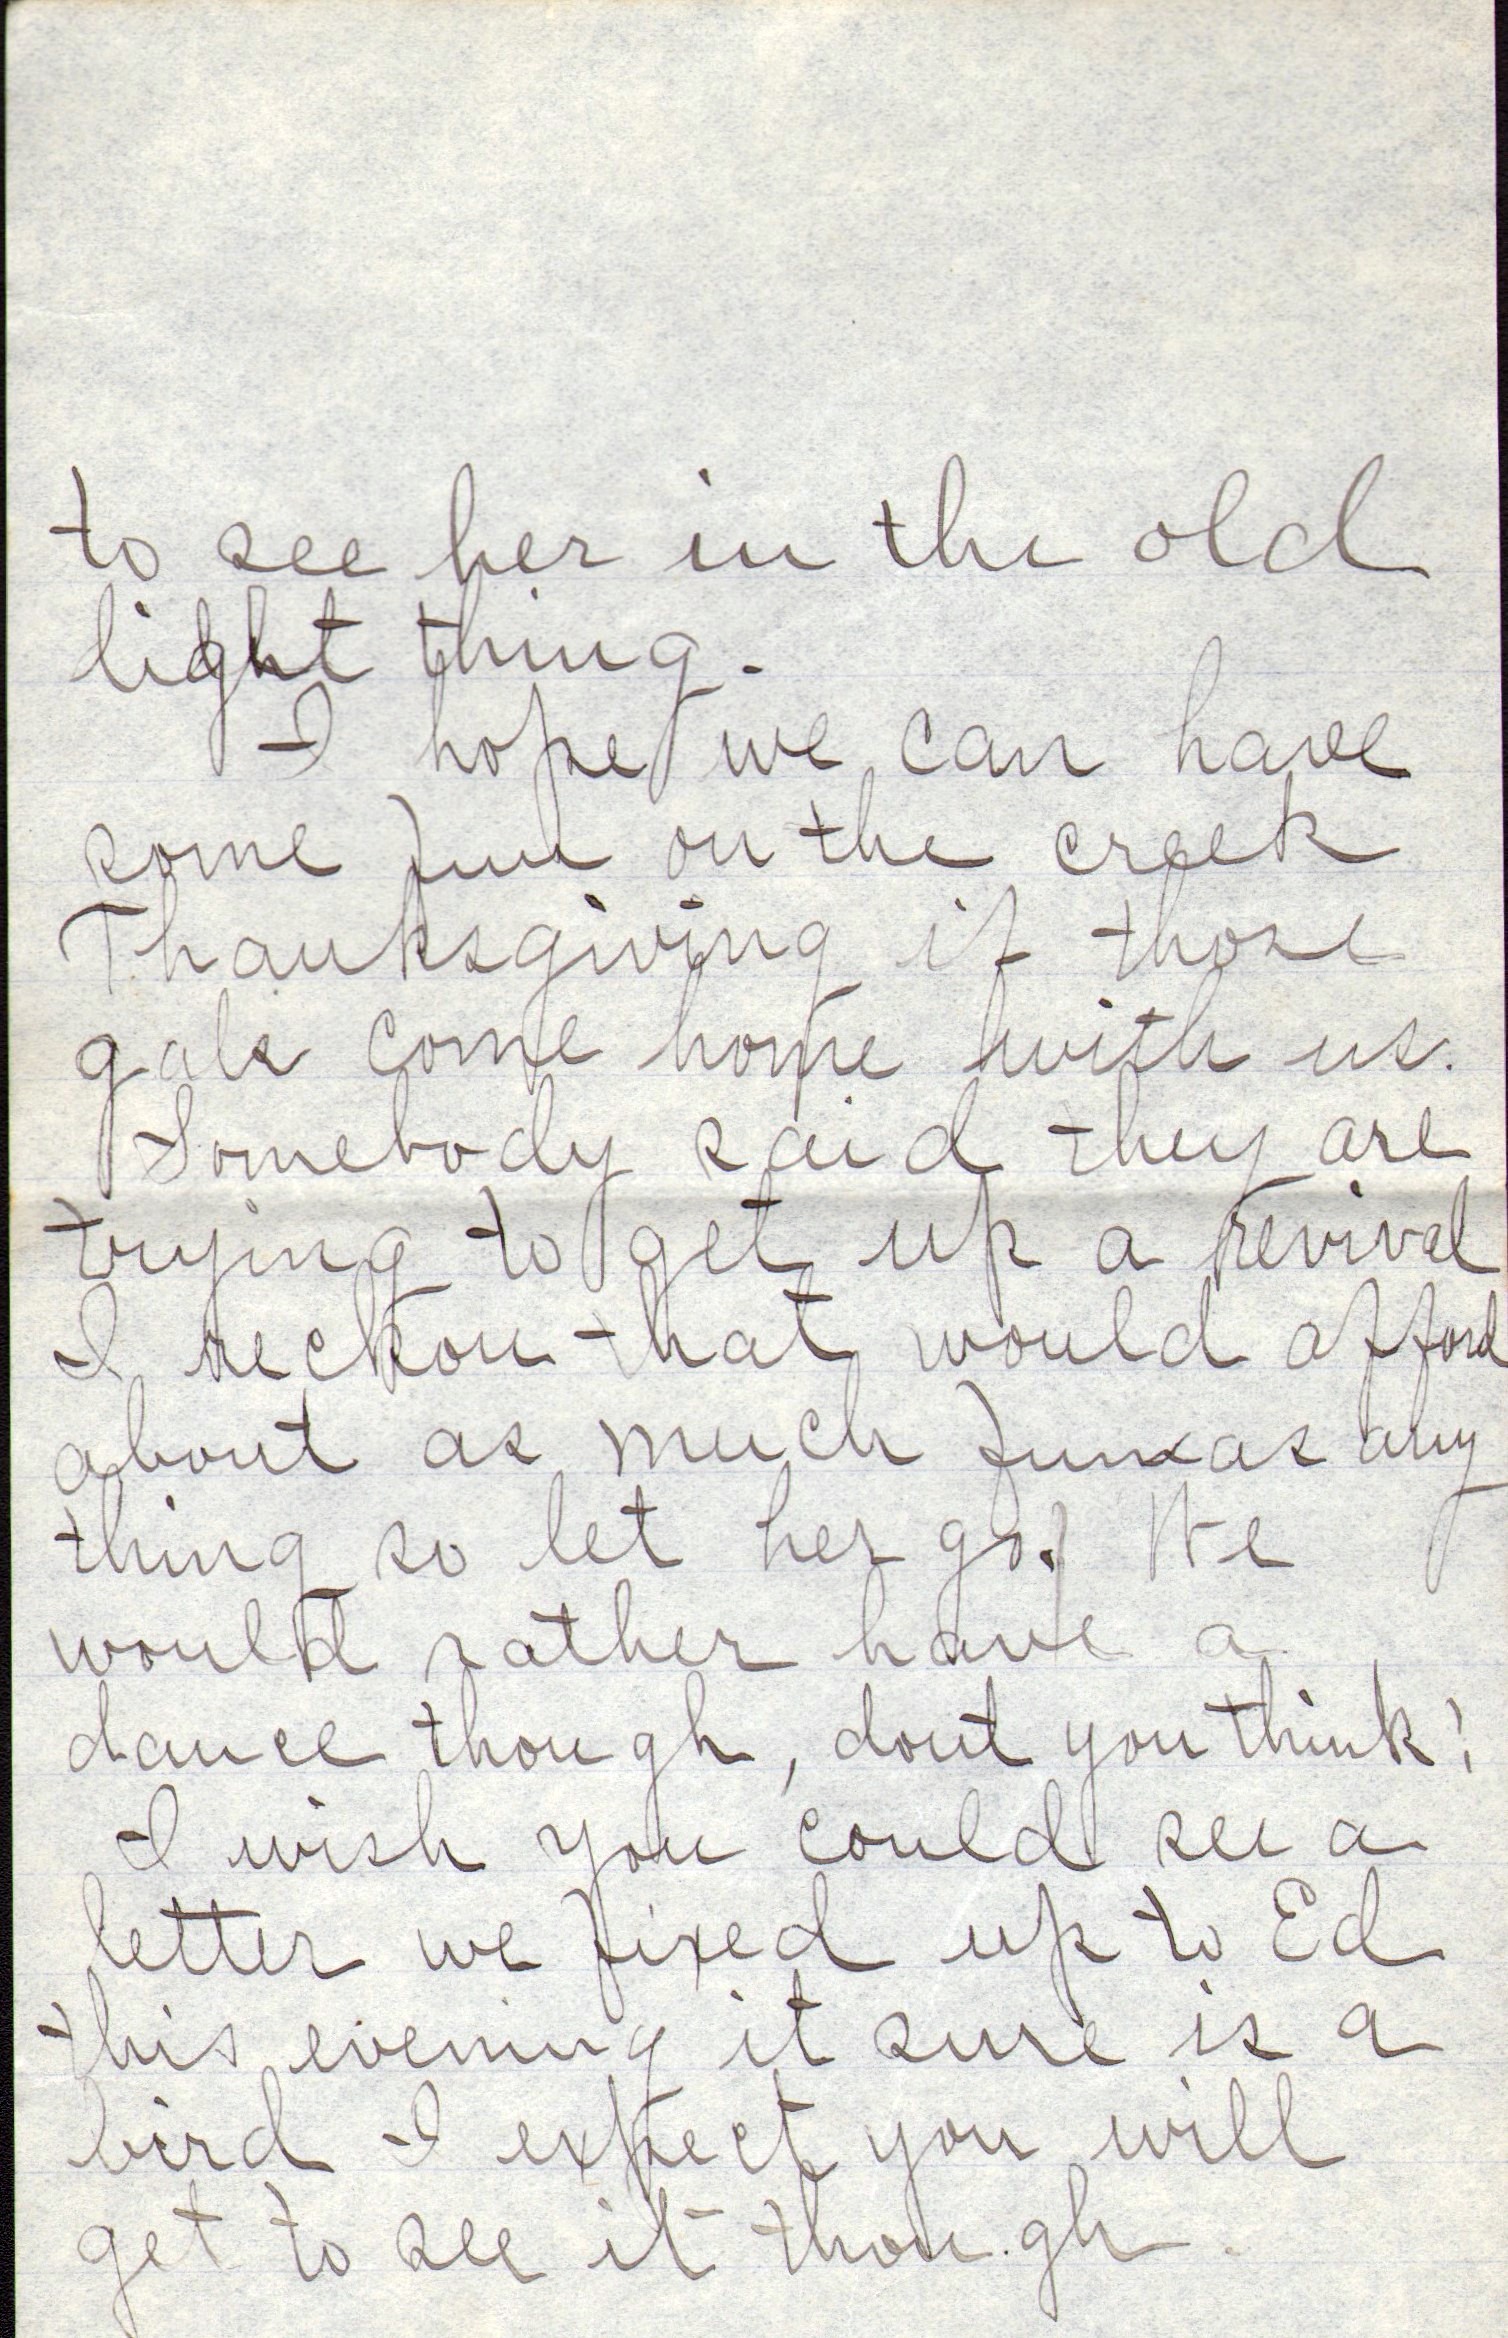 to see her in the old
light thing.
I hope we can have
some fun on the creek
Thanksgiving if those
gals come home with us.
Somebody said they are
trying to get up a revival
I reckon that would afford
about as much fun as any
thing so let her go. We
would rather have a
dance though, dont you think?
I wish you could see a
letter we fixed up to Ed
this evening it sure is a
bird I expect you will
get to see it though.